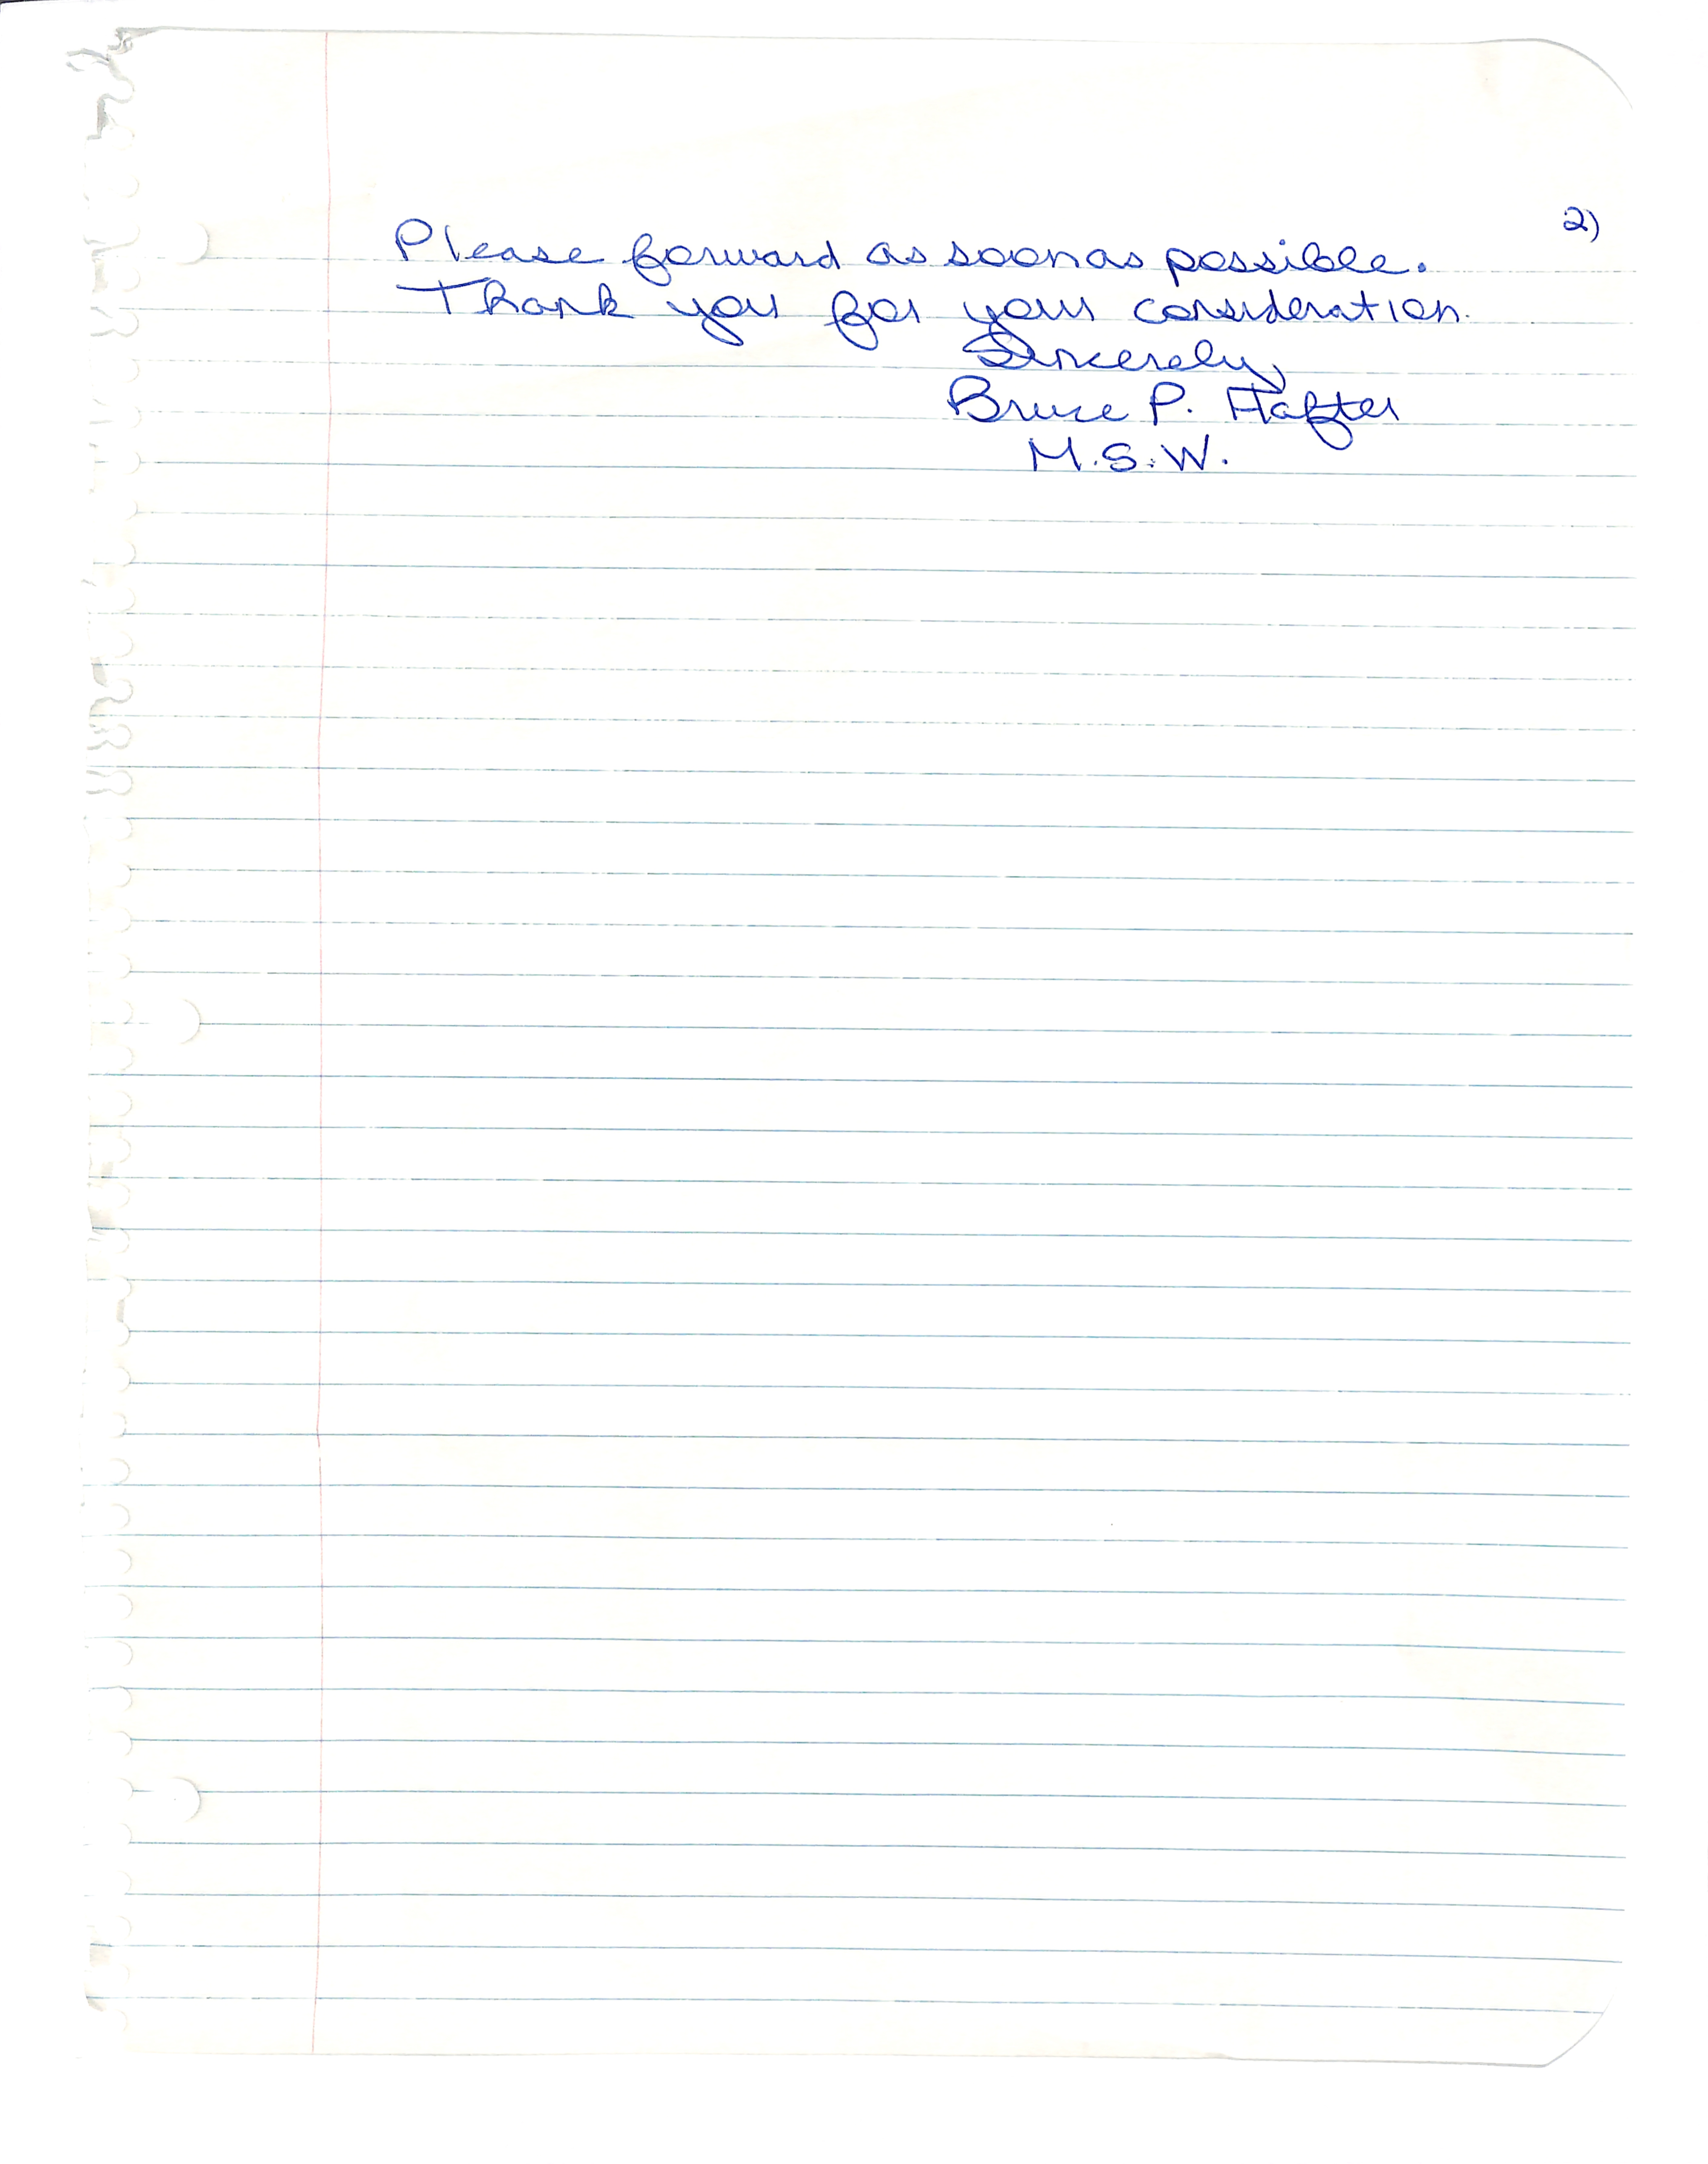 2)
Please forward as soon as possible.
Thank you for your consideration.
Sincerely,
Bruce P. Hafter
M.S.W.